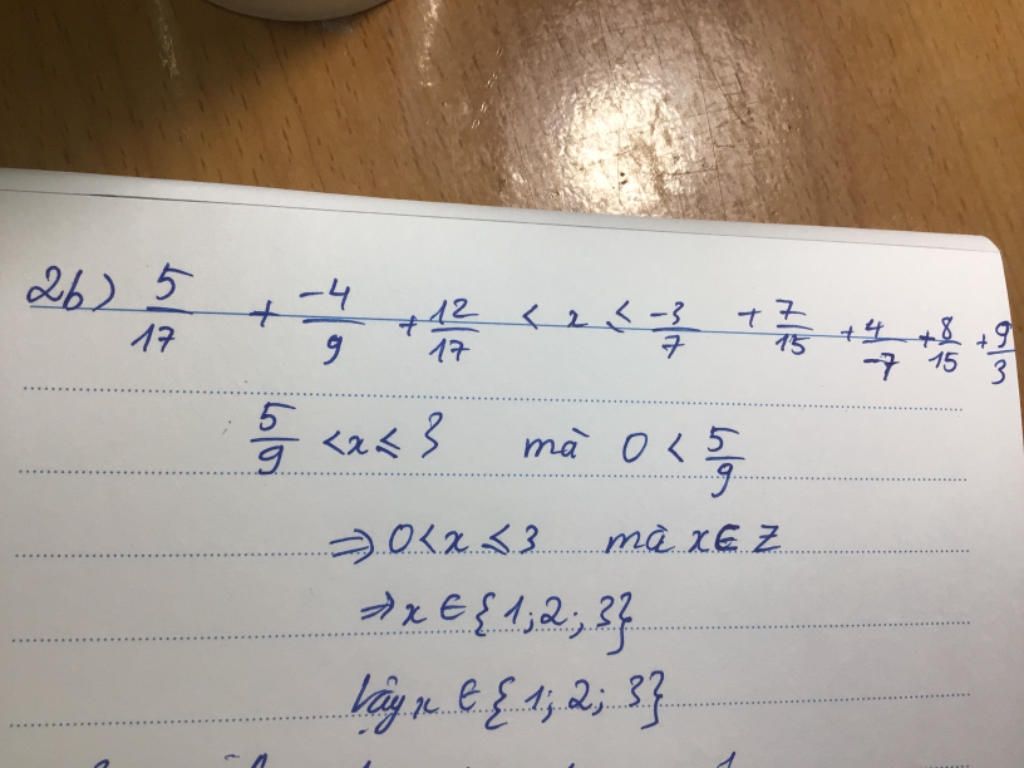 2b) 5/17 + -4/9 + 12/17 < x ≤ -3/7 + 7/15 + 4/-7 + 8/15 + 9/3
5/9 < x ≤ 3 mà 0 < 5/9
⇒ 0 < x ≤ 3 mà x ∈ Z
⇒ x ∈ { 1; 2; 3}
Vậy x ∈ { 1; 2; 3}